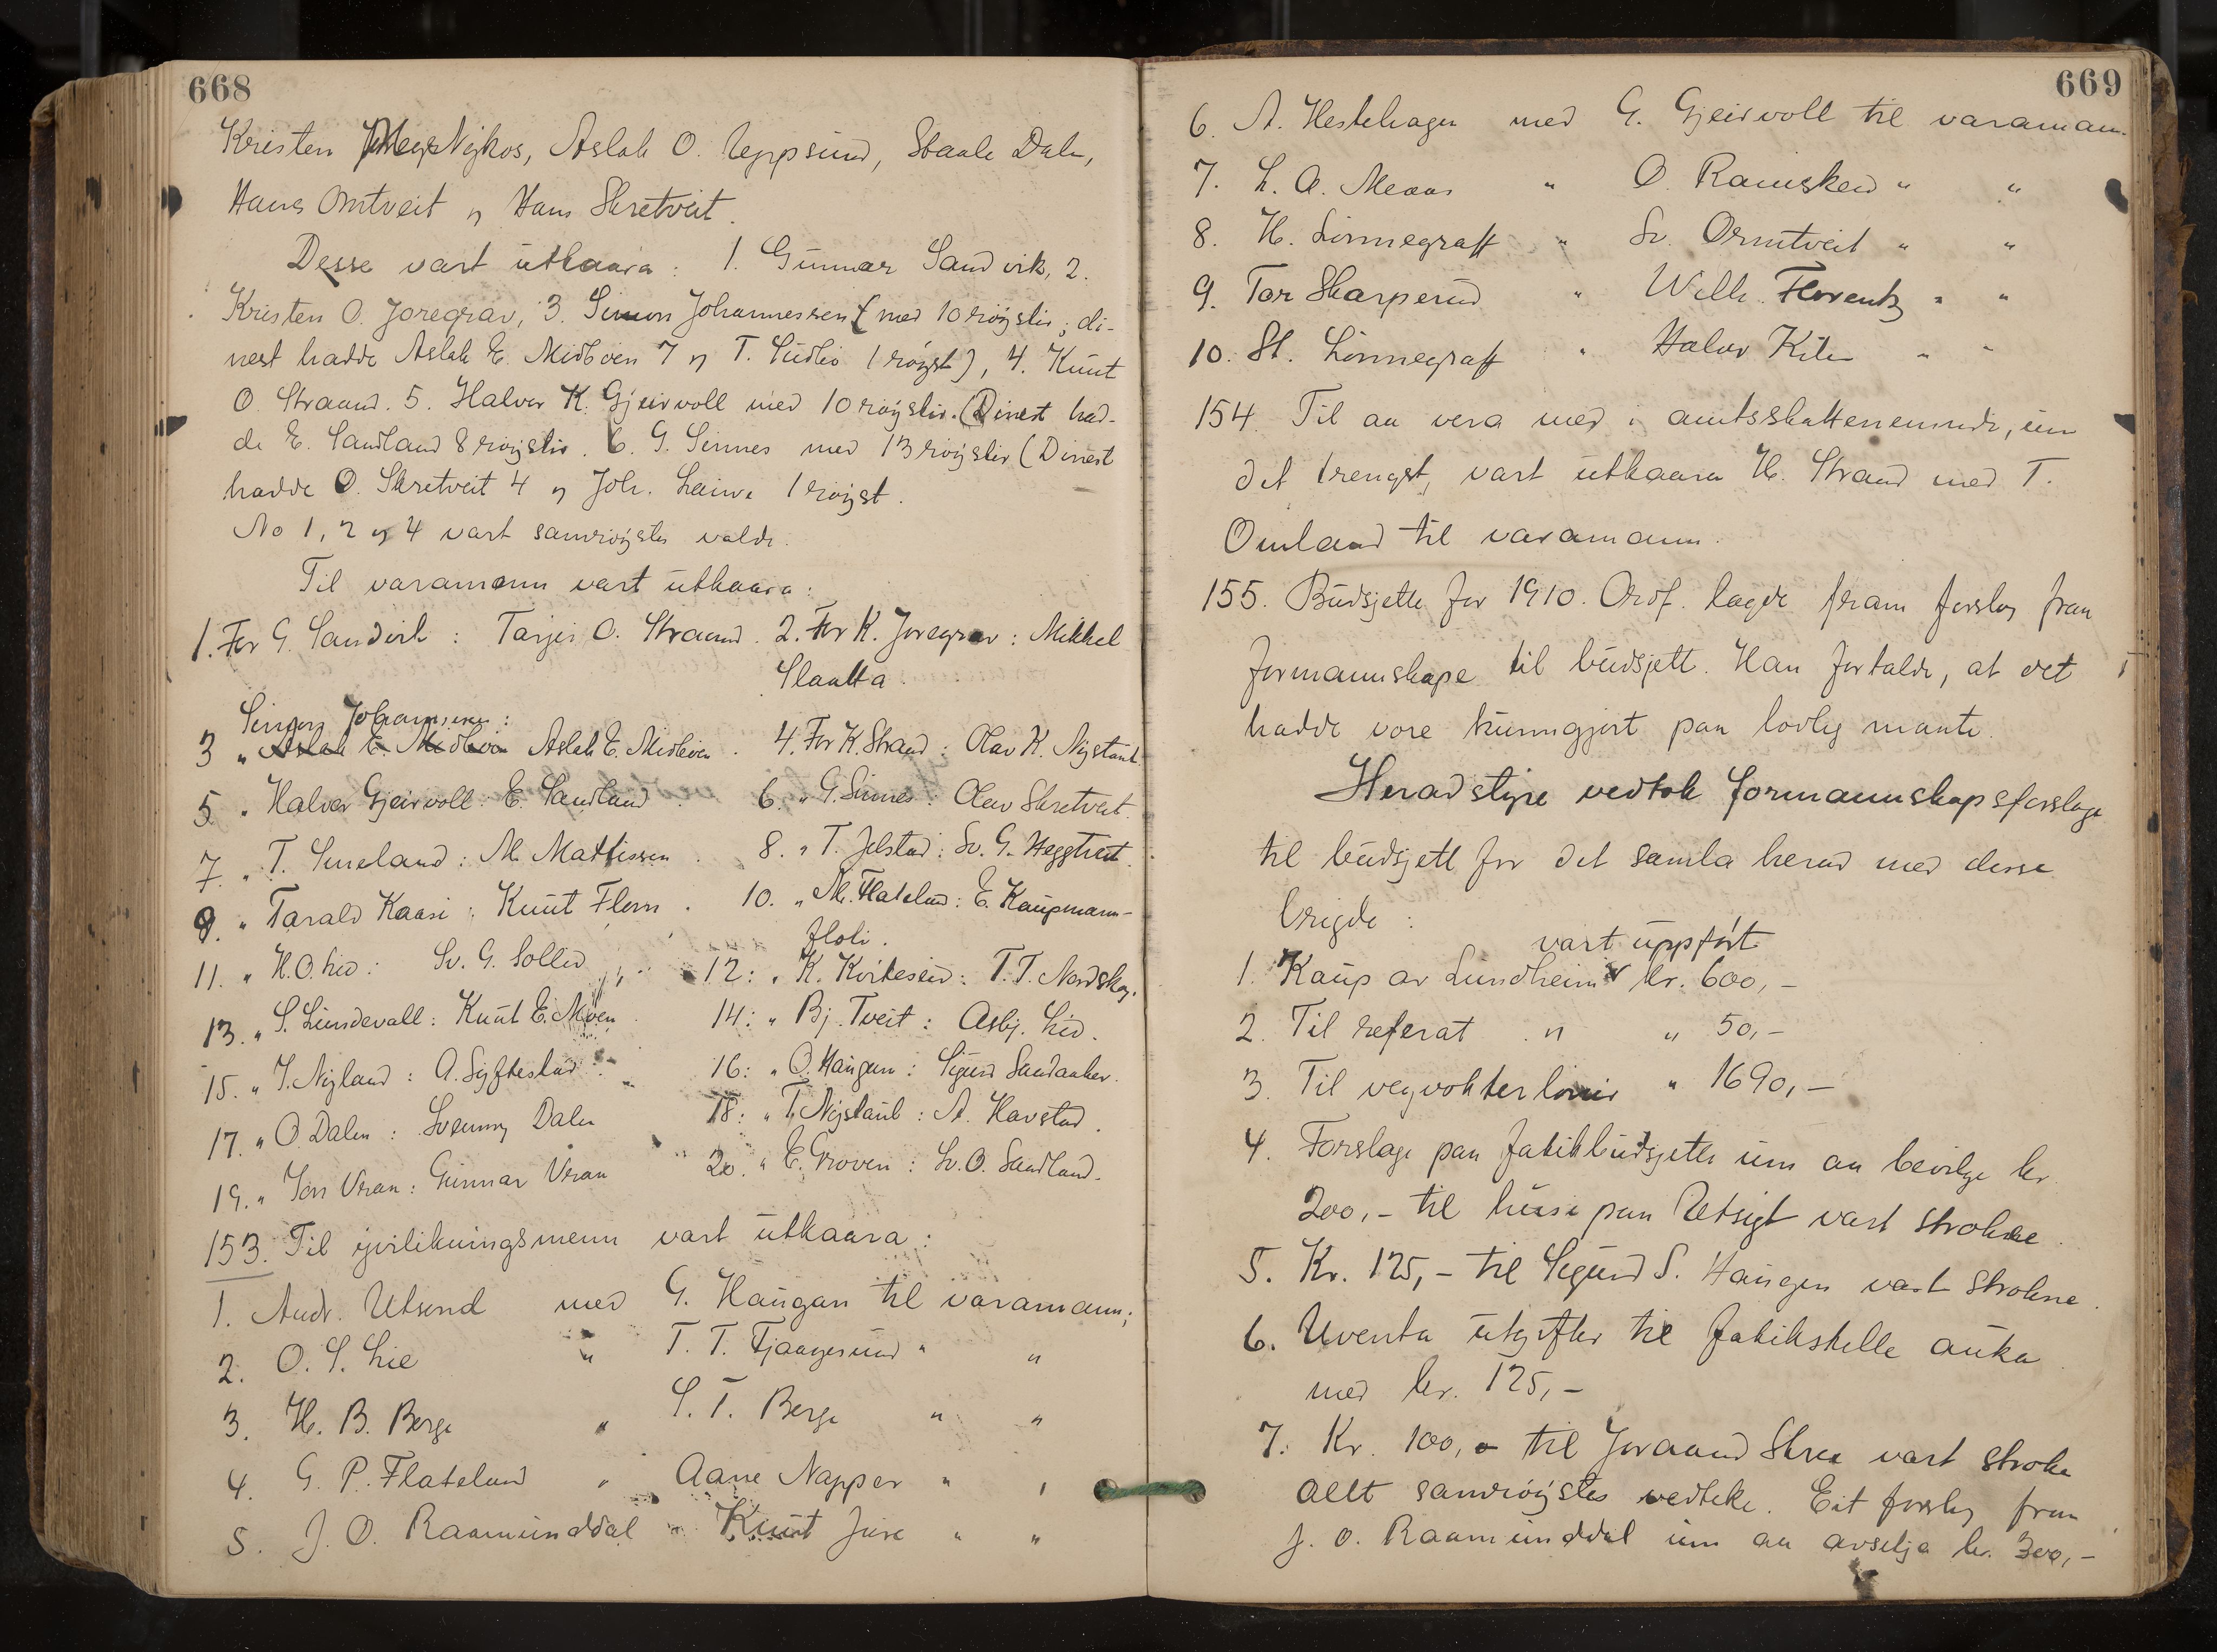 668
Kristen Nykos, Aslak O. Uppsund, Staale Dale,
Hans Omtveit og Hans Skretveit.
Desse vart utkaara: 1. Gunnar Sandvik, 2.
Kristen O. Joregrav, 3. Simon Johannessen (med 10 røyster; di-
nest hadde Aslak E. Midbøen 7 og T. Sudbø 1 røyst), 4. Knut
O. Straand. 5. Halvor K. Gjeirvoll med 10 røyster. (Dinest had-
de E. Sandland 8 røyster. 6. G. Sinnes med 13 røyster (Dinest
hadde O. Skretveit 4 og Joh. 1 røyst.
No 1, 2 og 4 vart samrøystes valde.
Til varamenn vart utkaara:
1. For G. Sandvik: Tarjei O. Straand. 2. For K. Joregrav: Mikkel
Slaatta.
Simon Johannessen:
3 " Aslak E. Midbøen Aslak E. Midbøen. 4. For K. Strand: Olav K. Nystaul.
5 " Halvor Gjeirvoll: E. Sandland. 6. " G. Sinnes: Olav Skretveit.
7. " T. Smeland: M. Mattissen. 8. " T. Jelstad: Sv. G. Heggtveit.
9. " Tarald Kaasi: Knut Flom. 10. " M. Flatelund: E. Kaupmann-
floti.
11. " H. O. Lid: Sv. G. Sollid 12: " K. Kvitesund: T. T. Nordskog.
13. " S. Lundevall: Knut E. Moen 14: " Bj. Tveit: Asbj. Lid.
15. " J. Nyland: A. Syftestad 16: " O. Haugan: Sigurd Sandaaker.
17. " O Dalen: Sveinung Dalen 18: " T. Nystaul: A. Havstad.
19. " Jon Vraa: Gunnar Vraa 20. " E. Groven: Sv. O. Sandland.
153. Til yvilikningsmenn vart utkaara:
1. Andr. Utsund med G. Haugan til varamann;
2. O. S. Lie " T. T. Fjaagesund " "
3. H. B. Berge " S. T. Berge " "
4. G. P. Flatelund " Aane Napper " "
5. J. O. Raamunddal " Knut Juve " "
669
6. A. Hestehagen med G. Gjeirvoll til varamann.
7. L. A. Meaas " O. Ramsken " "
8. H. Linnegraff " Sv. Ormtveit " "
9. Tor Skarperud " Wilh. Florentz " "
10. St. Linnegraff " Halvor Kile " "
154. Til aa vera med i amtsskattenemnde, um
det trengst, vart utkaara H. Strand med T.
Omland til varamann.
155. Budsjette for 1910. Ordf. lagde fram forslag fraa
formannskape til budsjett. Han fortalde, at det
hadde vore kunngjort paa lovleg maate.
Heradstyre vedtok formannskapsforslage
til budsjett for det samla herad med desse
brigde:
vart uppført
1. Kaup av Lundheim kr. 600,-
2. Til referat " " 50,-
3. Til vegvokterlønir " 1690,-
4. Forslage paa fatikbudsjette um aa bevilge kr.
200,- til husi paa Utsigt vart strokne.
5. Kr. 125,- til Sigurd S. Haugen vart strokne.
6. Uventa utgifter til fatikstelle auka
med kr. 125,-
7. Kr. 100,- til Joraand Skree vart stroke
Allt samrøystes vedteke. Eit forslag fraa
J. O. Raamunddal um aa avsetja kr. 300,-